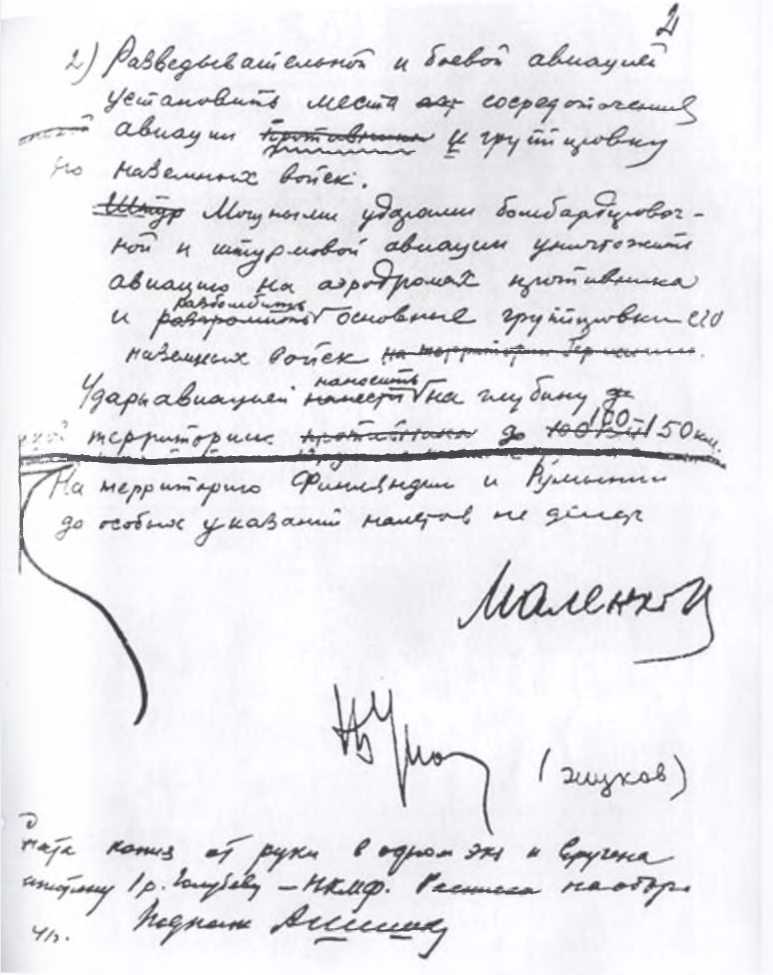 2
2) Разведывательной и боевой авиацией
установить места сосредоточения
авиации противника и группировку
наземных войск.
Штур Мощными ударами бомбардировоч-
ной и штурмовой авиации уничтожить
авиацию на аэродромах противника
разбомбить
и разгромить основные группировки его
наземных войск на территории Германии.
наносить
Удары авиацией нанести на глубину
территории противника до 100 150 км.
На территорию Финляндии и Румынии
до особых указаний налетов не делать
Маленков
(Жуков)
копия от руки в одном экз и вручена
Голубеву – НКМФ. Расписка на обор.
Подполк
41г.